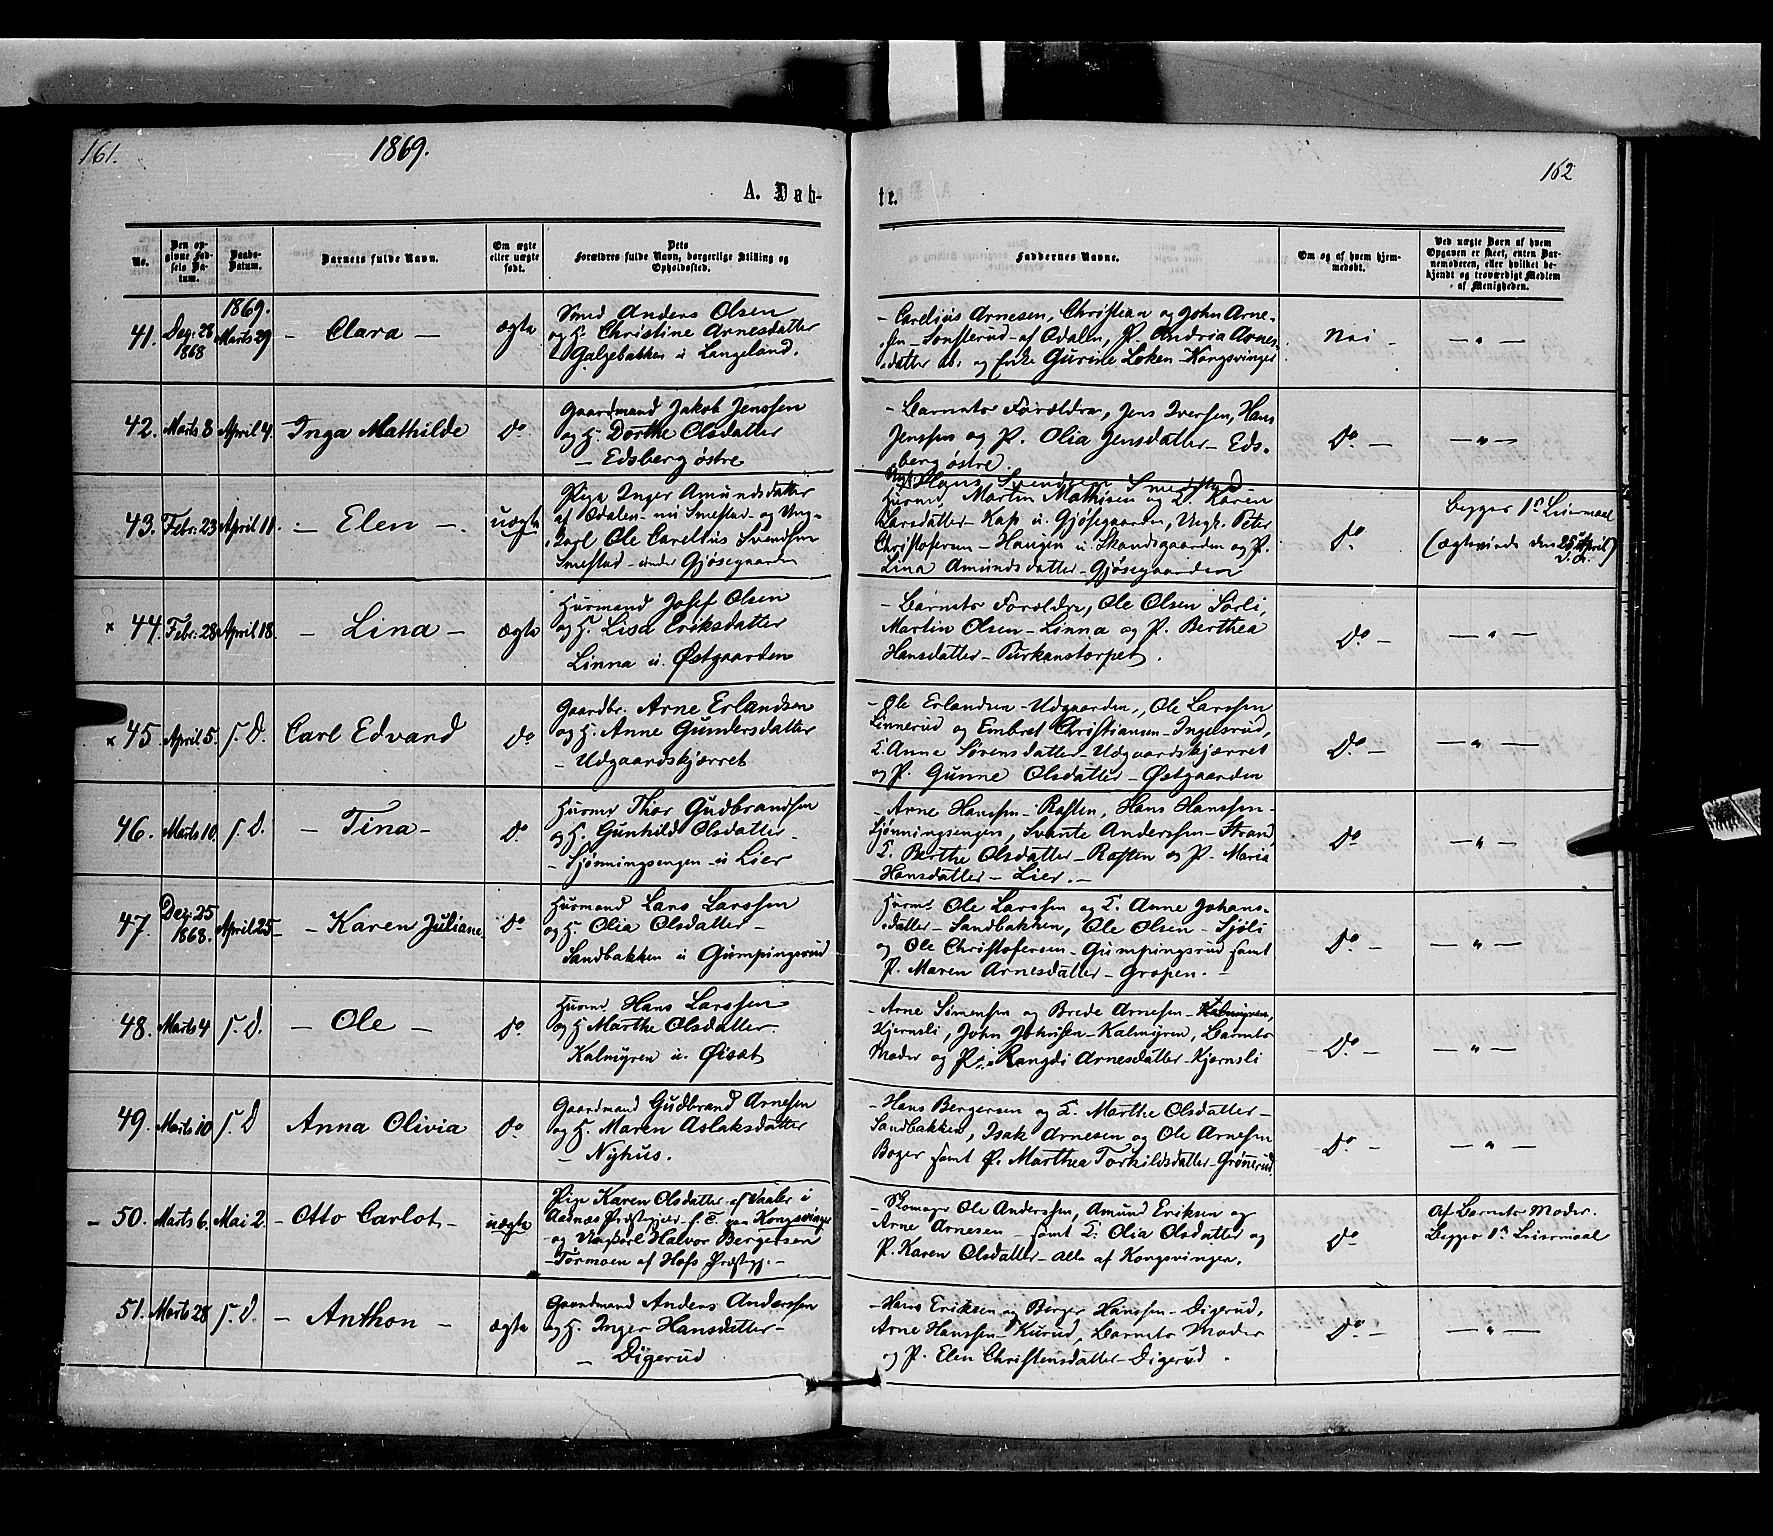 161.
1869.
162
A. Døb-
te.
No.
Den op-
givne Fød-
sels Da-
tum.
Daabs-
Datum.
Barnets fulde Navn.
Om ægte
eller uægte
født.
Dets
Forældres fulde Navn, borgerlige Stilling og
Opholdssted.
Faddernes Navne.
Om og af hvem hjem-
medøbt.
Ved uægte Børn af hvem
Opgaven er skeet, enten Bar-
nemoderen, eller hvilket be-
kjendt og troværdigt Medlem
af Menigheden.
1869.
41. Dez. 28 1868 Marts 29 - Clara - ægte
Smed Anders Olsen
og H. Christine Arnesdatter
Galgebakken u Langeland.
- Carelius Arnesen, Christian og John Arne-
sen - Sonsterud - af Odalen, P. Andrea Arnes-
datter ib. og Enke Gurine Løken - Kongsvinger
Nei - - " -
42. Marts 8 April 4. Inga Mathilde Do
Gaardmand Jakob Jenssen
og H. Dorthe Olsdatter
- Edsberg østre
- Barnets Forældre, Jens Iversen, Hans
Jenssen og P. Olia Jensdatter - Eds-
berg østre.
Do - - " -
43. Febr. 23 April 11. - Elen - uægte
Pige Inger Amundsdatter
af Odalen - nu Smestad - og Ung-
karl Ole Carelius Svendsen
Smestad - under Gjøsegaarden
Hans Svendsen Smestad -
Husmd Martin Mathisen og K Karen
Larsdatter - Kap u. Gjøsegaarden, Ungk. Peter
Christofersen - Haugen u. Skandsgaarden og P.
Lina Amundsdatter - Gjøsegaarden
Do -
begges 1s Leiermaal
(Ægteviede den 25 April)
44. Febr. 28 April 18. - Lina - ægte
Husmand Josef Olsen
og H. Lisa Eriksdatter
Linna u. Østgaarden
- Barnets Forældre, Ole Olsen Sorli,
Martin Olsen - Linna og P. Berthea
Hansdatter - Purkanstorpet.
Do - - " -
45. April 5. s. D. Carl Edvard Do
Gaardbr. Arne Erlandsen
og H. Anne Gundersdatter
- Udgaardskjærret
- Ole Erlandsen - Udgaarden, Ole Larssen
Linnerud og Embret Christiansen - Ingelsrud,
K. Anne Sørensdatter - Udgaardskjærret
og P. Gunne Olsdatter - Østgaarden
Do - - " -
46. Marts 10. s. D. - Tina - Do
Husmd Thor Gudbrandsen
og H. Gunhild Olsdatter -
- Sjønningsengen u Lier
- Arne Hanssen - Rasten, Hans Hanssen -
Sjønningsengen, Svante Anderssen - Strand,
K. Berthe Olsdatter - Rasten og P. Maria
Hansdatter - Lier. -
Do - " -
47. Dez. 25 1868. April 25 - Karen Juliane. Do
Husmand Lars Larssen
og H. Olia Olsdatter -
Sandbakken u Gumpingsrud
Husm. Ole Larssen og K. Anne Johans-
datter - Sandbakken, Ole Olsen - Sjøli
og Ole Christofersen - Gumpingsrud samt
P. Maren Arnesdatter - Gropen. -
Do - - " -
48. Marts 4 s. D. - Ole - Do
Husmd Hans Larssen
og H Marthe Olsdatter -
Kalmyren u. Øiset
- Arne Simensen og Brede Arnesen -
Kjernsli, John Johnsen - Kalmyren, Barnets
Moder og P. Rangdi Arnesdatter - Kjernsli
- Do - - " -
49. Marts 10 s. D Anna Olivia Do
Gaardmand Gudbrand Arnesen
og H. Maren Aslaksdatter
- Nyhus.
- Hans Bergersen og K. Marthe Olsdatter -
Sandbakken, Isak Arnesen og Ole Arnesen
Boger samt P. Marthea Torkildsdatter - Grønerud
Do - - " -
- 50. Marts 6. Mai 2. - Otto Carlot - uægte
Pige Karen Olsdatter af Vaaler i
Aadnæs Præstegjeld - f. T. paa Kongsvinger
- og Ungkarl Halvor Bergersen
- Tørmoen af Hofs Præstgj. -
- Skomager Ole Anderssen, Amund Eriksen og
Arne Arnesen - samt K. Olia Olsdatter og
P. Karen Olsdatter - Alle af Kongsvinger.
Do -
Af Barnets Moder.
Begges 1s Leiermaal
51. Marts 28 s. D. - Anthon - ægte
Gaardmand Anders Anderssen
og H. Inger Hansdatter -
- Digerud
- Hans Eriksen og Berger Hanssen - Digerud,
Arne Hanssen - Kurud, Barnets Moder
og P. Elen Christensdatter - Digerud.
Do - - " -